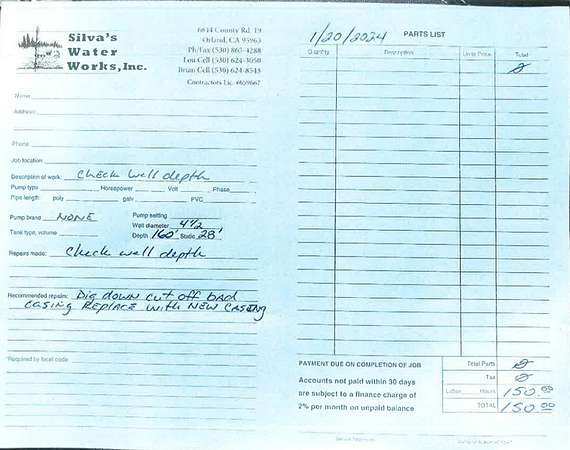 Silva's
Water
Works, Inc.
6644 County Rd. 19
Orland, CA 95963
Ph/Fax (530) 865-4288
Lou Cell (530) 624-3050
Brian Cell (530) 624-8543
Contractors Lic. #659667
Name
Address
Phone
Job location
Description of work: Check Well depth
Pump type Horsepower Volt Phase
Pipe length: poly galv PVC
Pump brand NONE Pump setting
Well diameter 4 1/2
Tank type, volume Depth 160' Static 28'
Repairs made: Check well depth
Recommended repairs: Dig down cut off bad
casing Replace with NEW CASING
*Required by local code
1/20/2024 PARTS LIST
Quantity Description Units Price Total
PAYMENT DUE ON COMPLETION OF JOB
Accounts not paid within 30 days
are subject to a finance charge of
2% per month on unpaid balance
Total Parts
Tax
Labor Hours 150.00
TOTAL 150.00